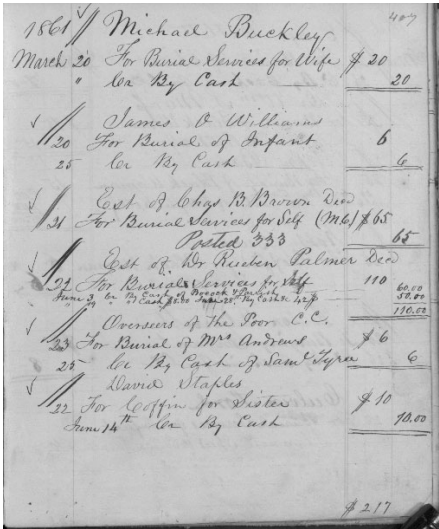 407
1861 // Michael Buckley
March 20 For Burial Services for Wife $ 20
" Cr By Cash 20
James O Williams
20 For Burial of Infant 6
25 Cr By Cash 6
Est of Chas B. Brown Decd
21 For Burial Services for Self (M.C.) $65
Posted 333 65
Est of Dr Reuben Palmer Decd
22 For Burial Services for Self 110
June 3 Cr By Cash of 60.00
" Cash $8.00 June 28, By Cash 42 50.00
110.00
Overseers of the Poor C.C.
23 For Burial of Mrs Andrews $ 6
25 Cr By Cash of Saml Tyree 6
David Staples
22 For Coffin for Sister $ 10
June 14th Cr By Cash 10.00
$ 217